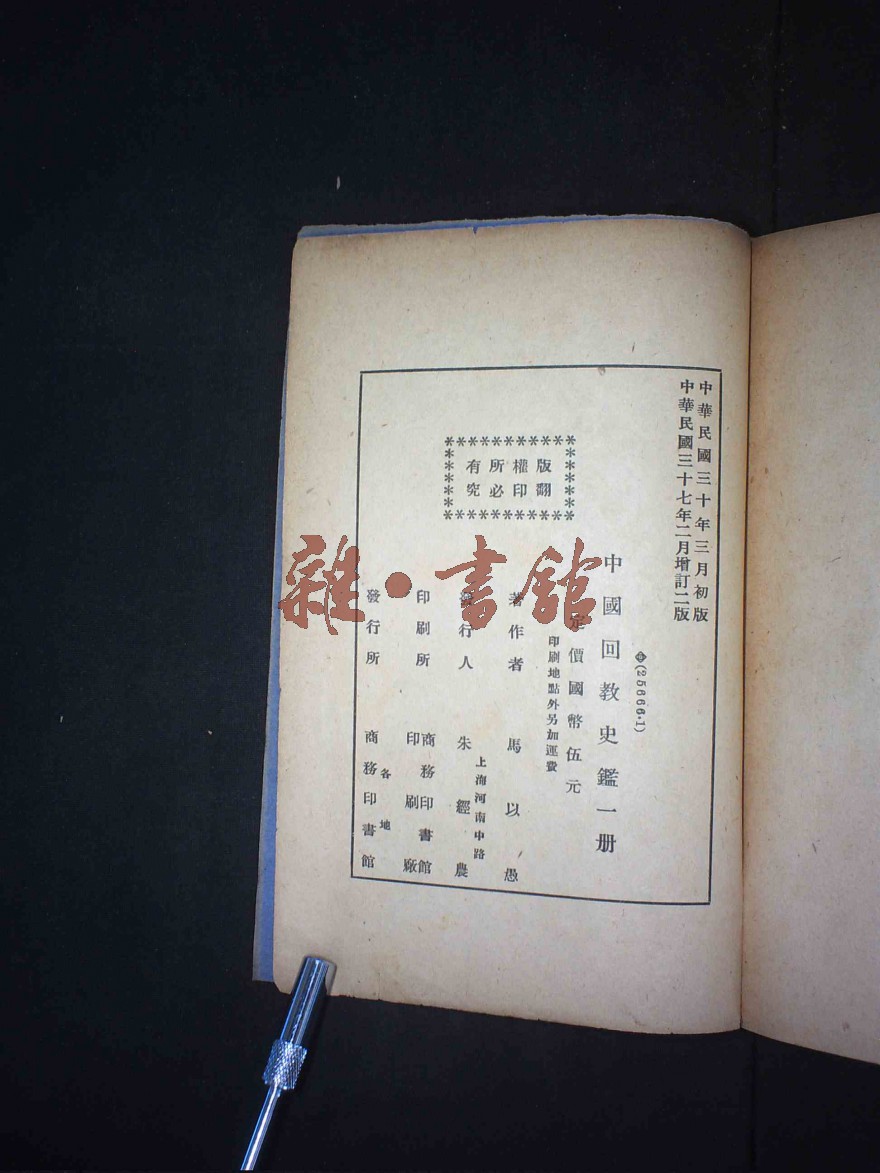 中華民國三十年三月初版
中華民國三十七年二月增訂二版
(25666·1)
中國回教史鑑一册
定價國幣伍元
印刷地點外另加運費
版權所有
翻印必究
著作者 馬以愚
上海河南中路
發行人 朱經農
印刷所 商務印書館
印刷廠
各地
發行所 商務印書館
雜·書館